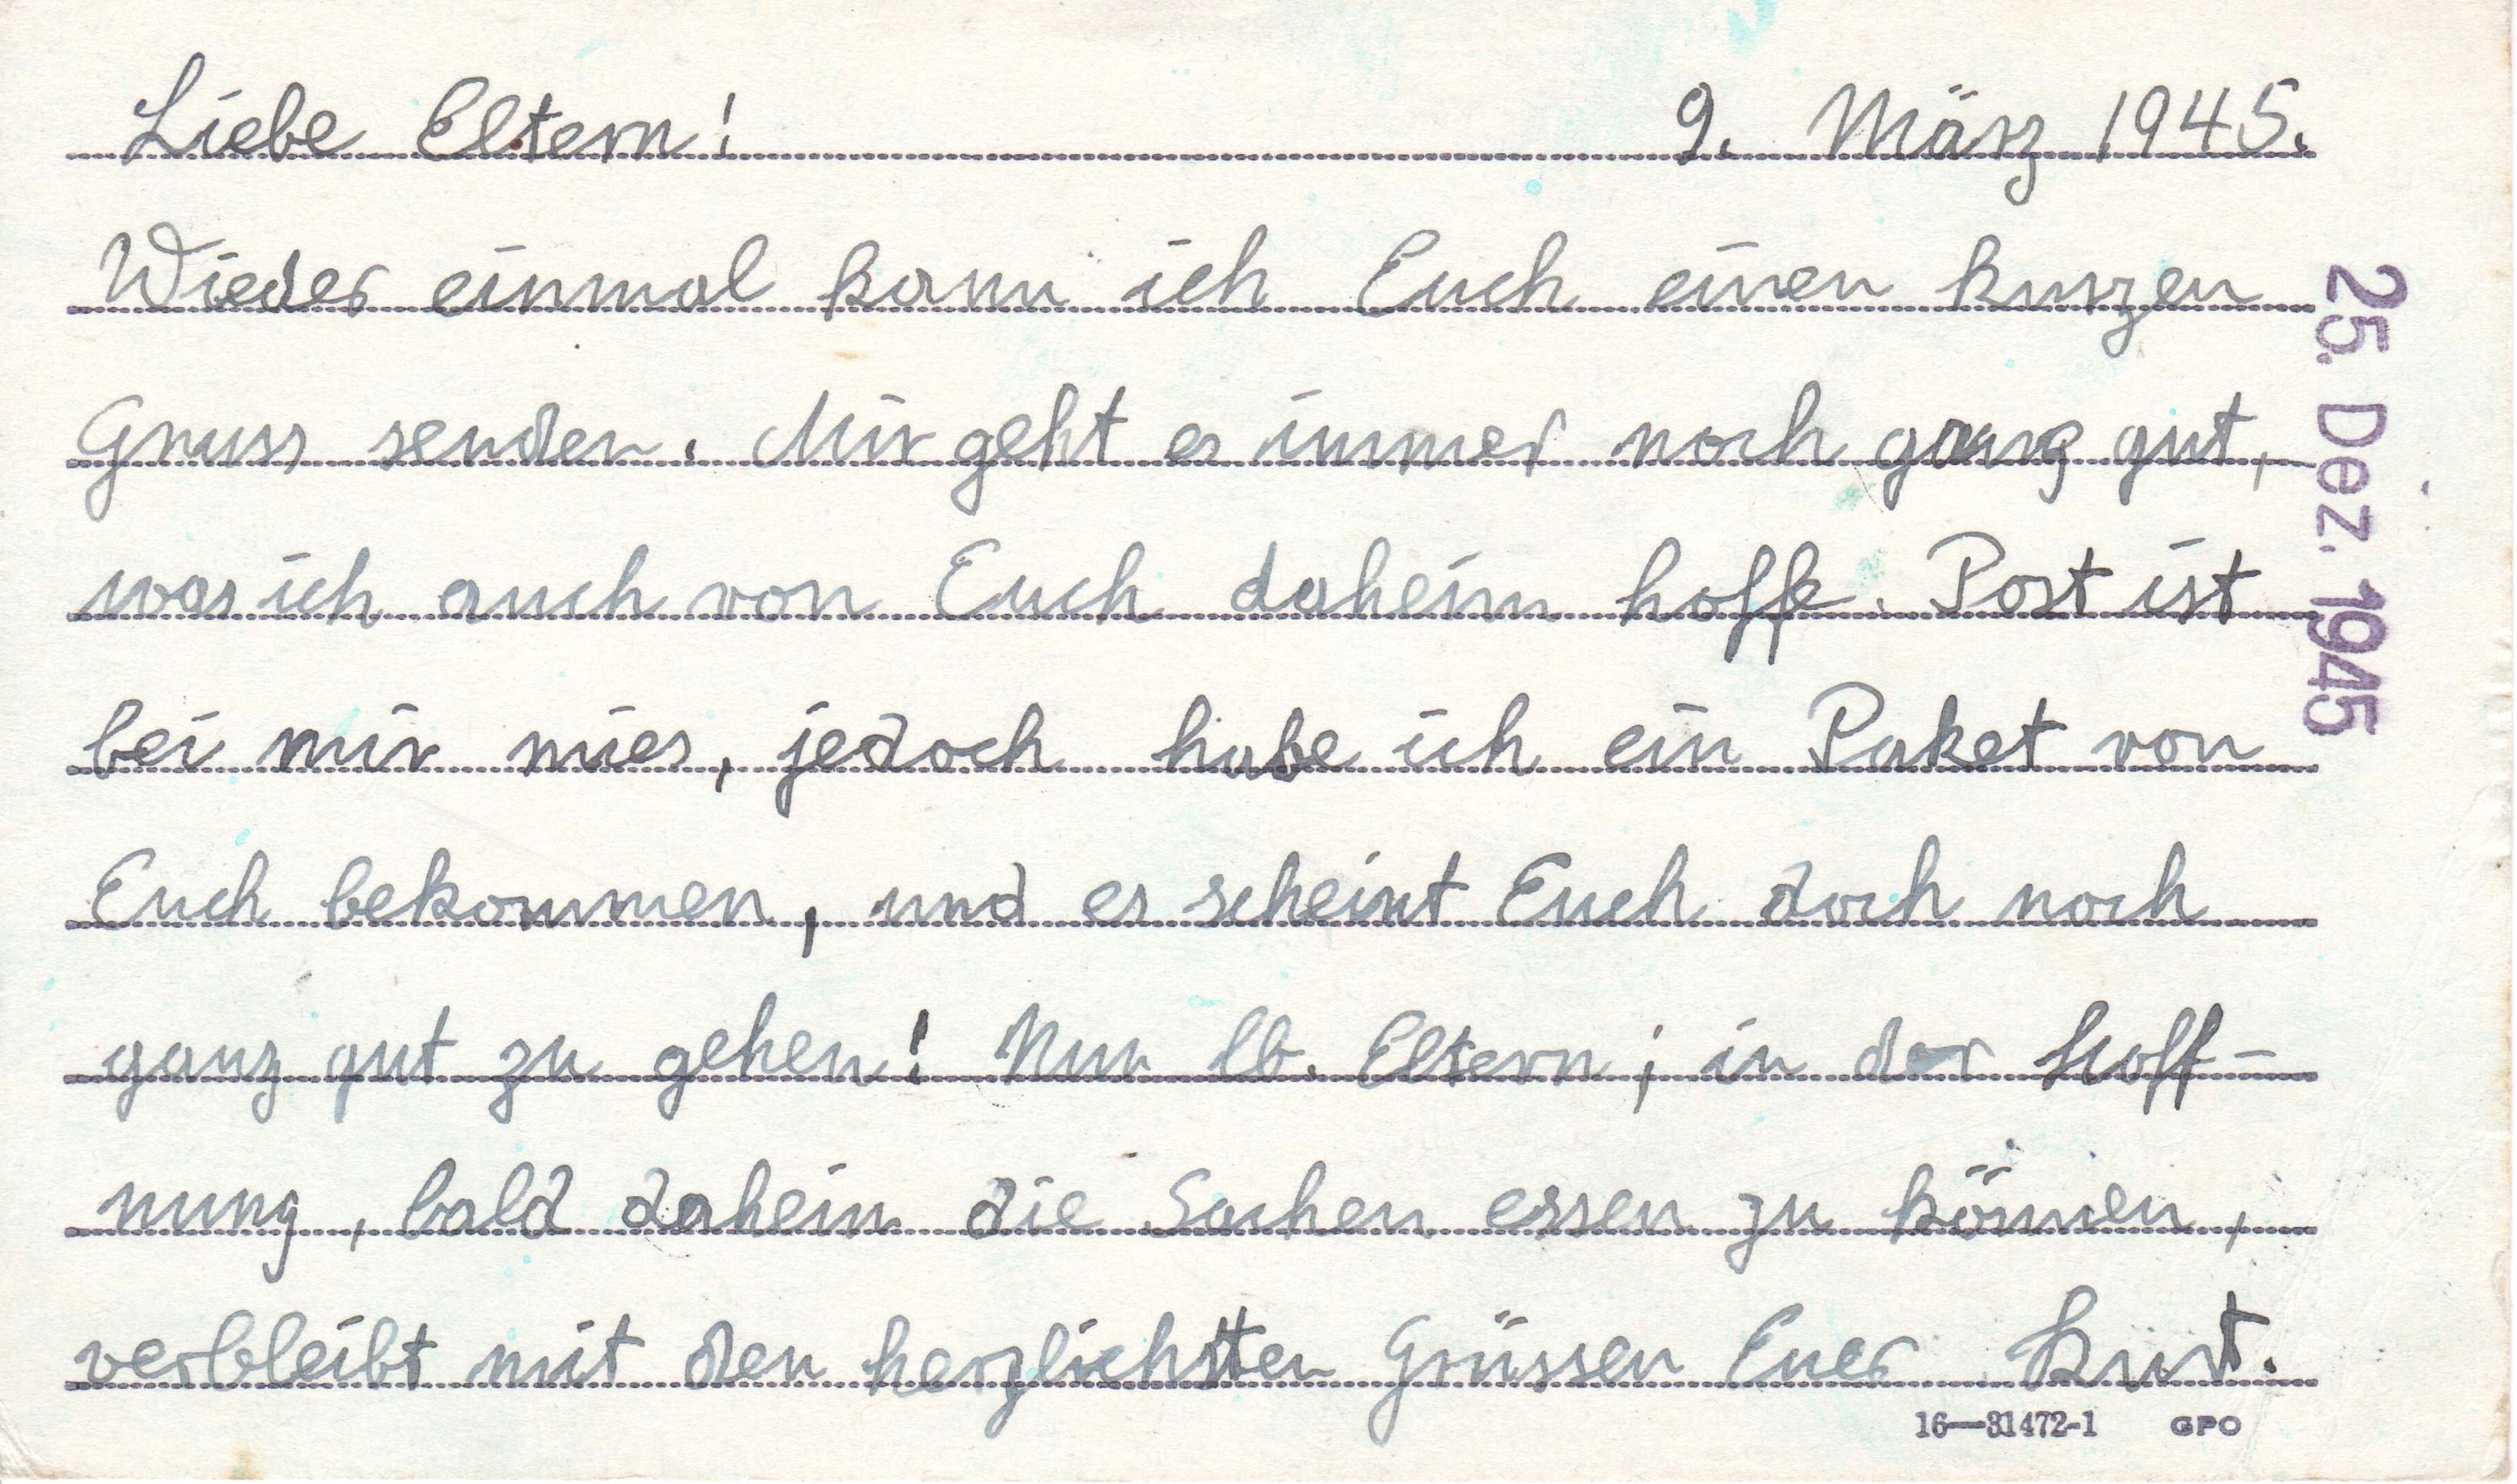 Liebe Eltern! 9. März 1945.
Wieder einmal kann ich Euch einen kurzen
Gruss senden. Mir geht es immer noch ganz gut,
was ich auch von Euch daheim hoffe. Post ist
bei mir mies, jedoch habe ich ein Paket von
Euch bekommen, und es scheint Euch doch noch
ganz gut zu gehen! Nun lb. Eltern; in der Hoff-
nung, bald daheim die Sachen essen zu können,
verbleibt mit den herzlichsten Grüssen Euer Kurt.
16—31472-1 GPO
25. Dez. 1945